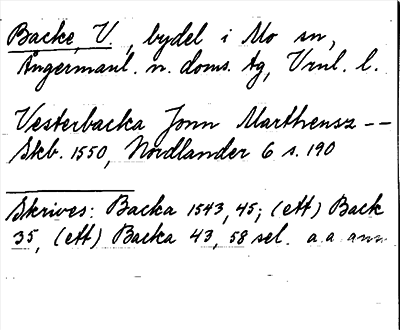 Backe, V., bydel i Mo sn,
Ångermanl. n. doms. tg, Vrnl. l.
Vesterbacka Jonn Marthensz --
Skb. 1550, Nordlander 6 s. 190
Skrives: Backa 1543, 45; (ett) Back
35, (ett) Backa 43, 58 sel. a.a. ann